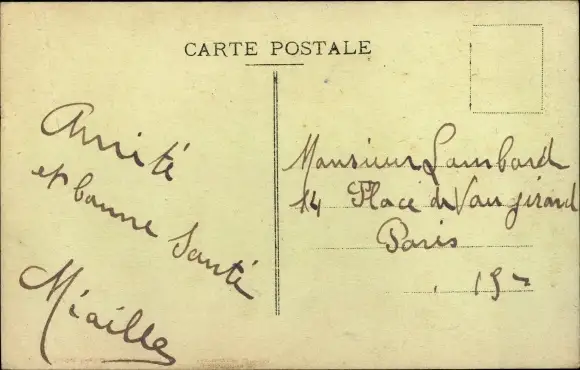 CARTE POSTALE
Amitié
et bonne Santé
Méaille
Monsieur Lambard
14 Place de Vaugirard
Paris
15